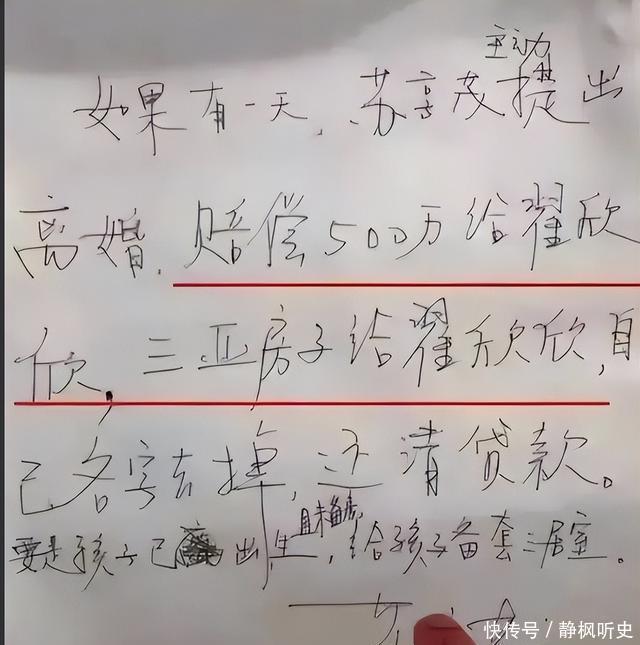 主动
如果有一天,苏享茂提出
离婚,赔偿500万给翟欣
欣,三亚房子给翟欣欣,自
己名字去掉,还清贷款。
且未备房
要是孩子已出生,给孩子备套三居室。
快传号/静枫听史